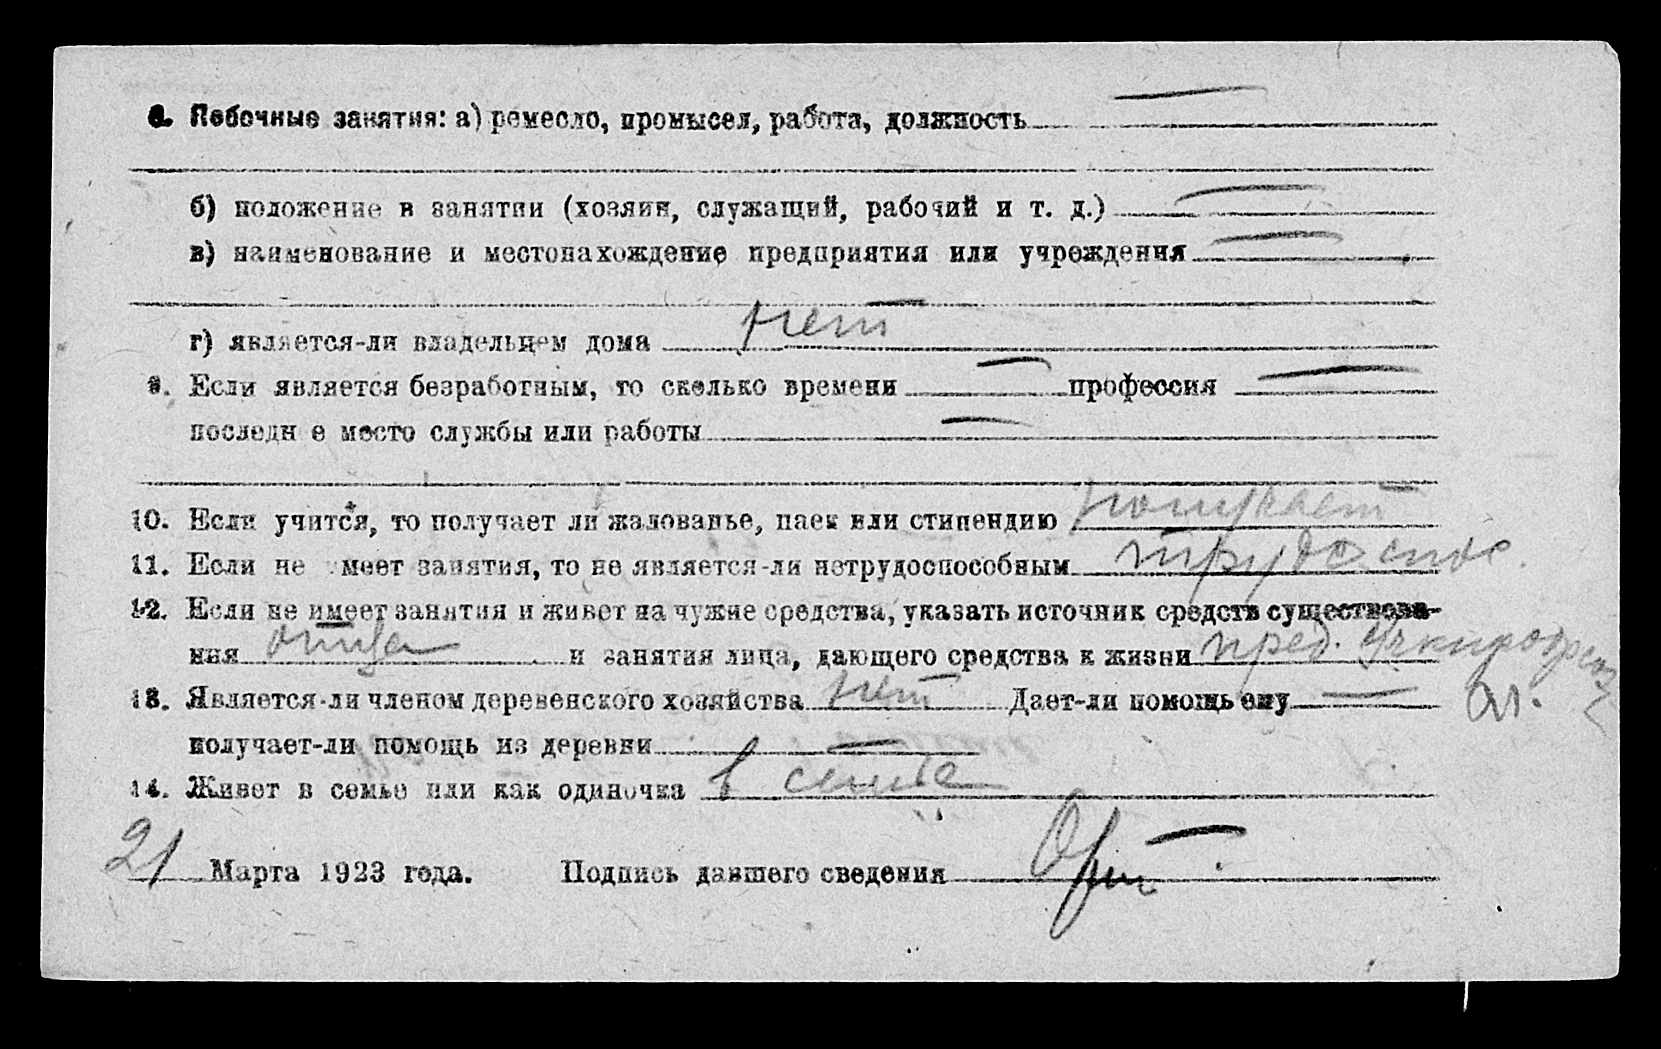 8. Побочные занятия: а) ремесло, промысел, работа, должность —
б) положение в занятии (хозяин, служащий, рабочий и т. д.) —
в) наименование и местонахождение предприятия или учреждения —
г) является-ли владельцем дома нет
9. Если является безработным, то сколько времени — профессия —
последн е место службы или работы —
10. Если учится, то получает ли жалованье, паек или стипендию
11. Если не имеет занятия, то не является-ли нетрудоспособным трудоспос.
12. Если не имеет занятия и живет на чужие средства, указать источник средств существова-
ния отца и занятия лица, дающего средства к жизни пред.
13. Является-ли членом деревенского хозяйства нет Дает-ли помощь ему —
получает-ли помощь из деревни —
14. Живет в семье или как одиночка в семье
21 Марта 1923 года. Подпись давшего сведения